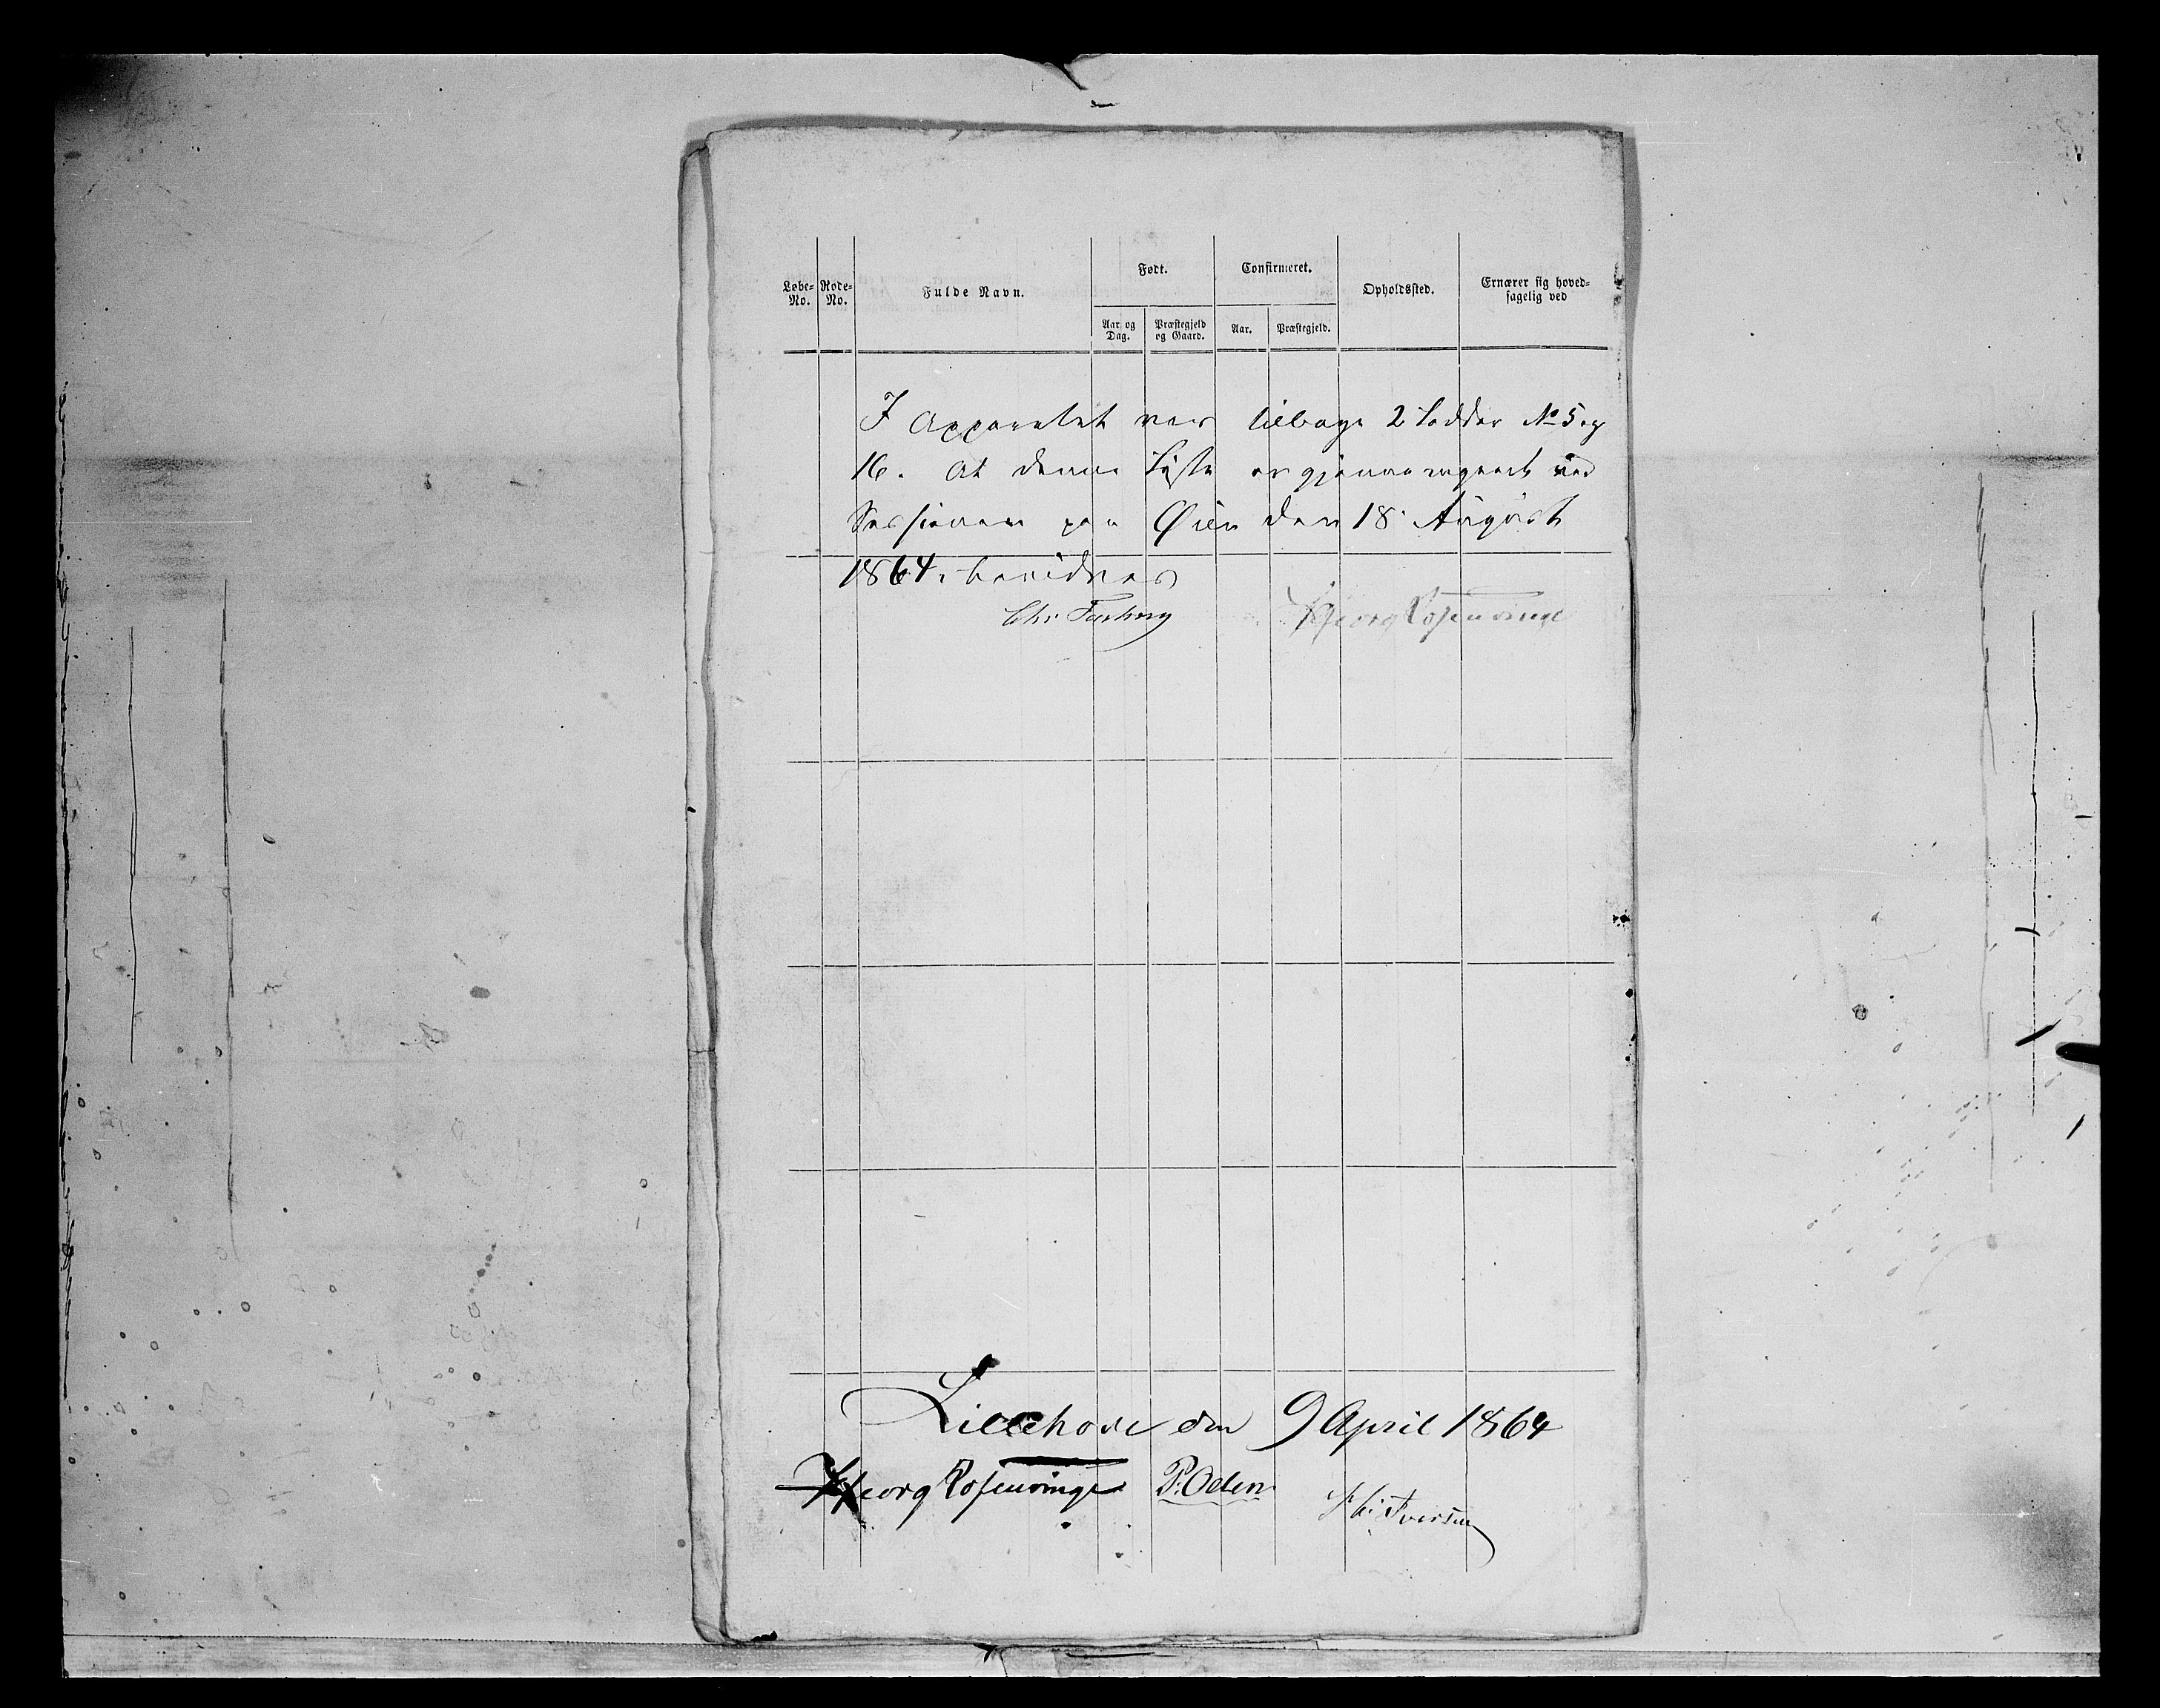 Løbe-No. Rode-No. Fulde Navn. Født. Confirmeret. Opholdssted. Ernærer sig hoved-sagelig ved
Aar og Dag. Præstegjeld og Gaard. Aar. Præstegjeld.
I Apparatet var tilbage 2 Lodder No 5 og
16. At denne Liste er gjennemgaaet ved
Sessionen paa Øien den 18. August
1864, bevidner
Chr Georg Rosenvinge
Lillehove den 9 April 1864
Georg Rosenvinge P. Olsen Iversen